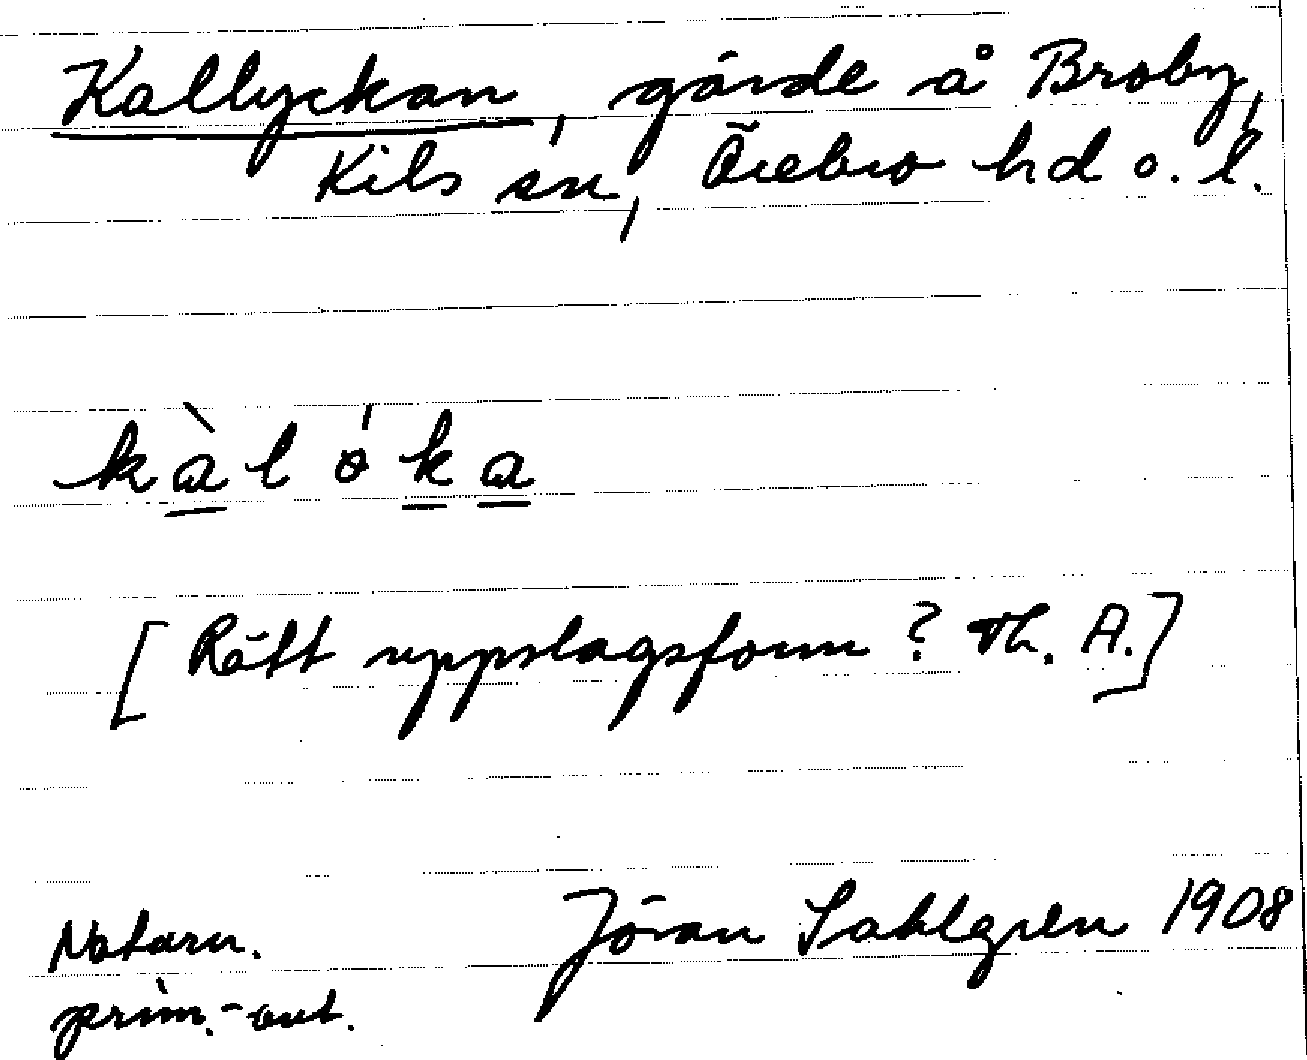 Kallyckan, gärde å Broby,
Kils sn, Örebro hd o. l.
kàlóka
[Rätt uppslagsform? Th. A.]
Naturn.
prim.-ant.
Jöran Sahlgren 1908